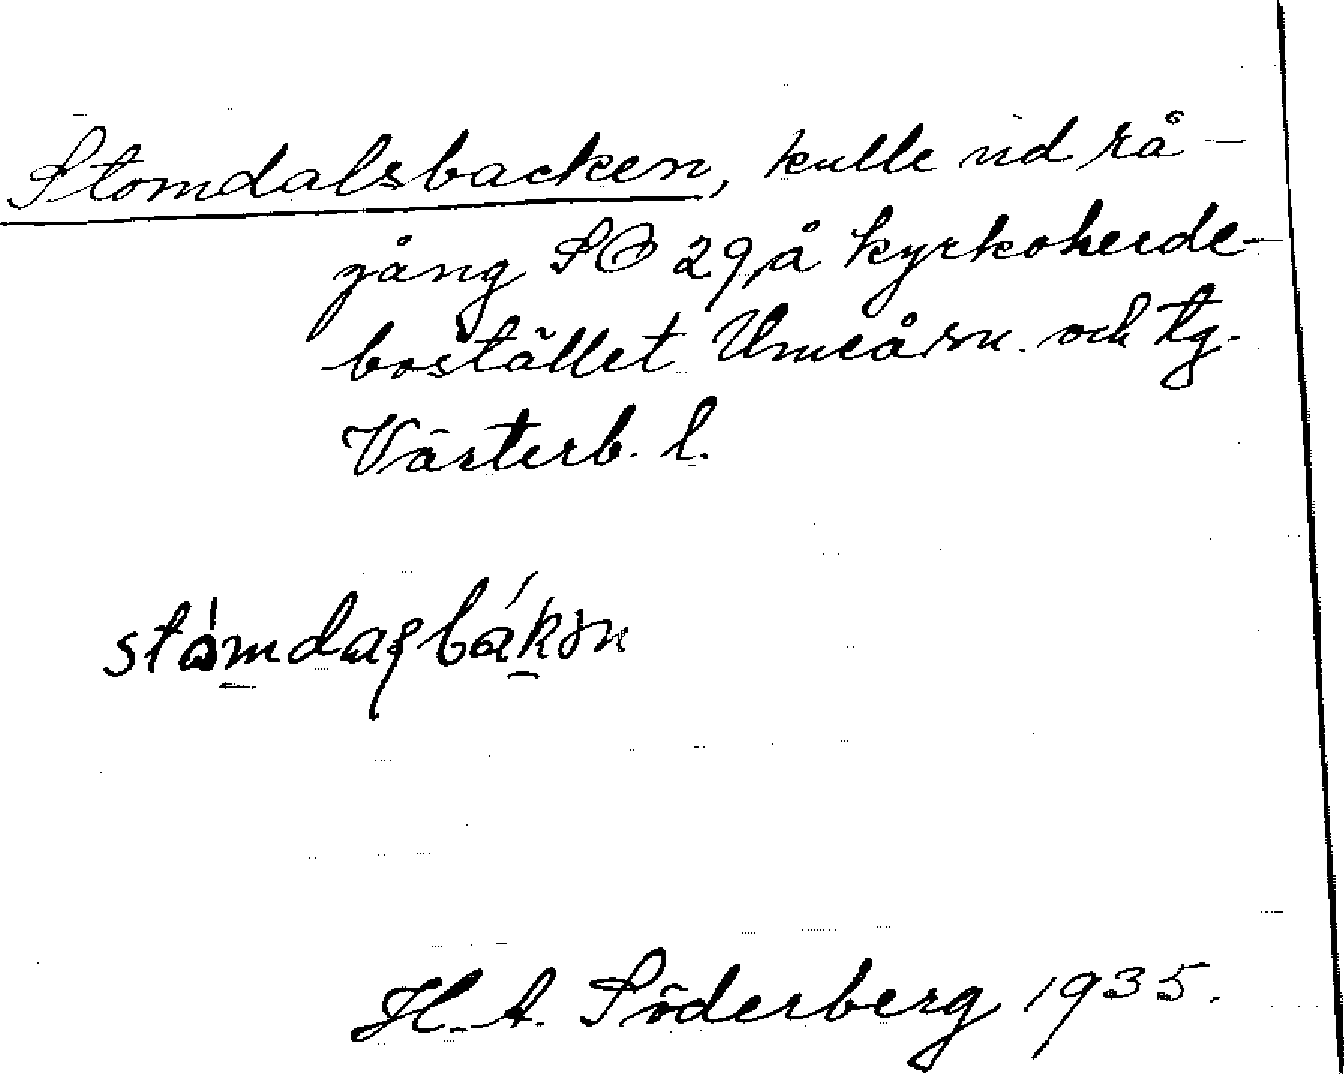 Stomdalsbacken, kulle vid rå-
gång SO 29, å kyrkoherde-
bostället Umeå sn. och tg.
Västerb. l.
H. A. Söderberg 1935.